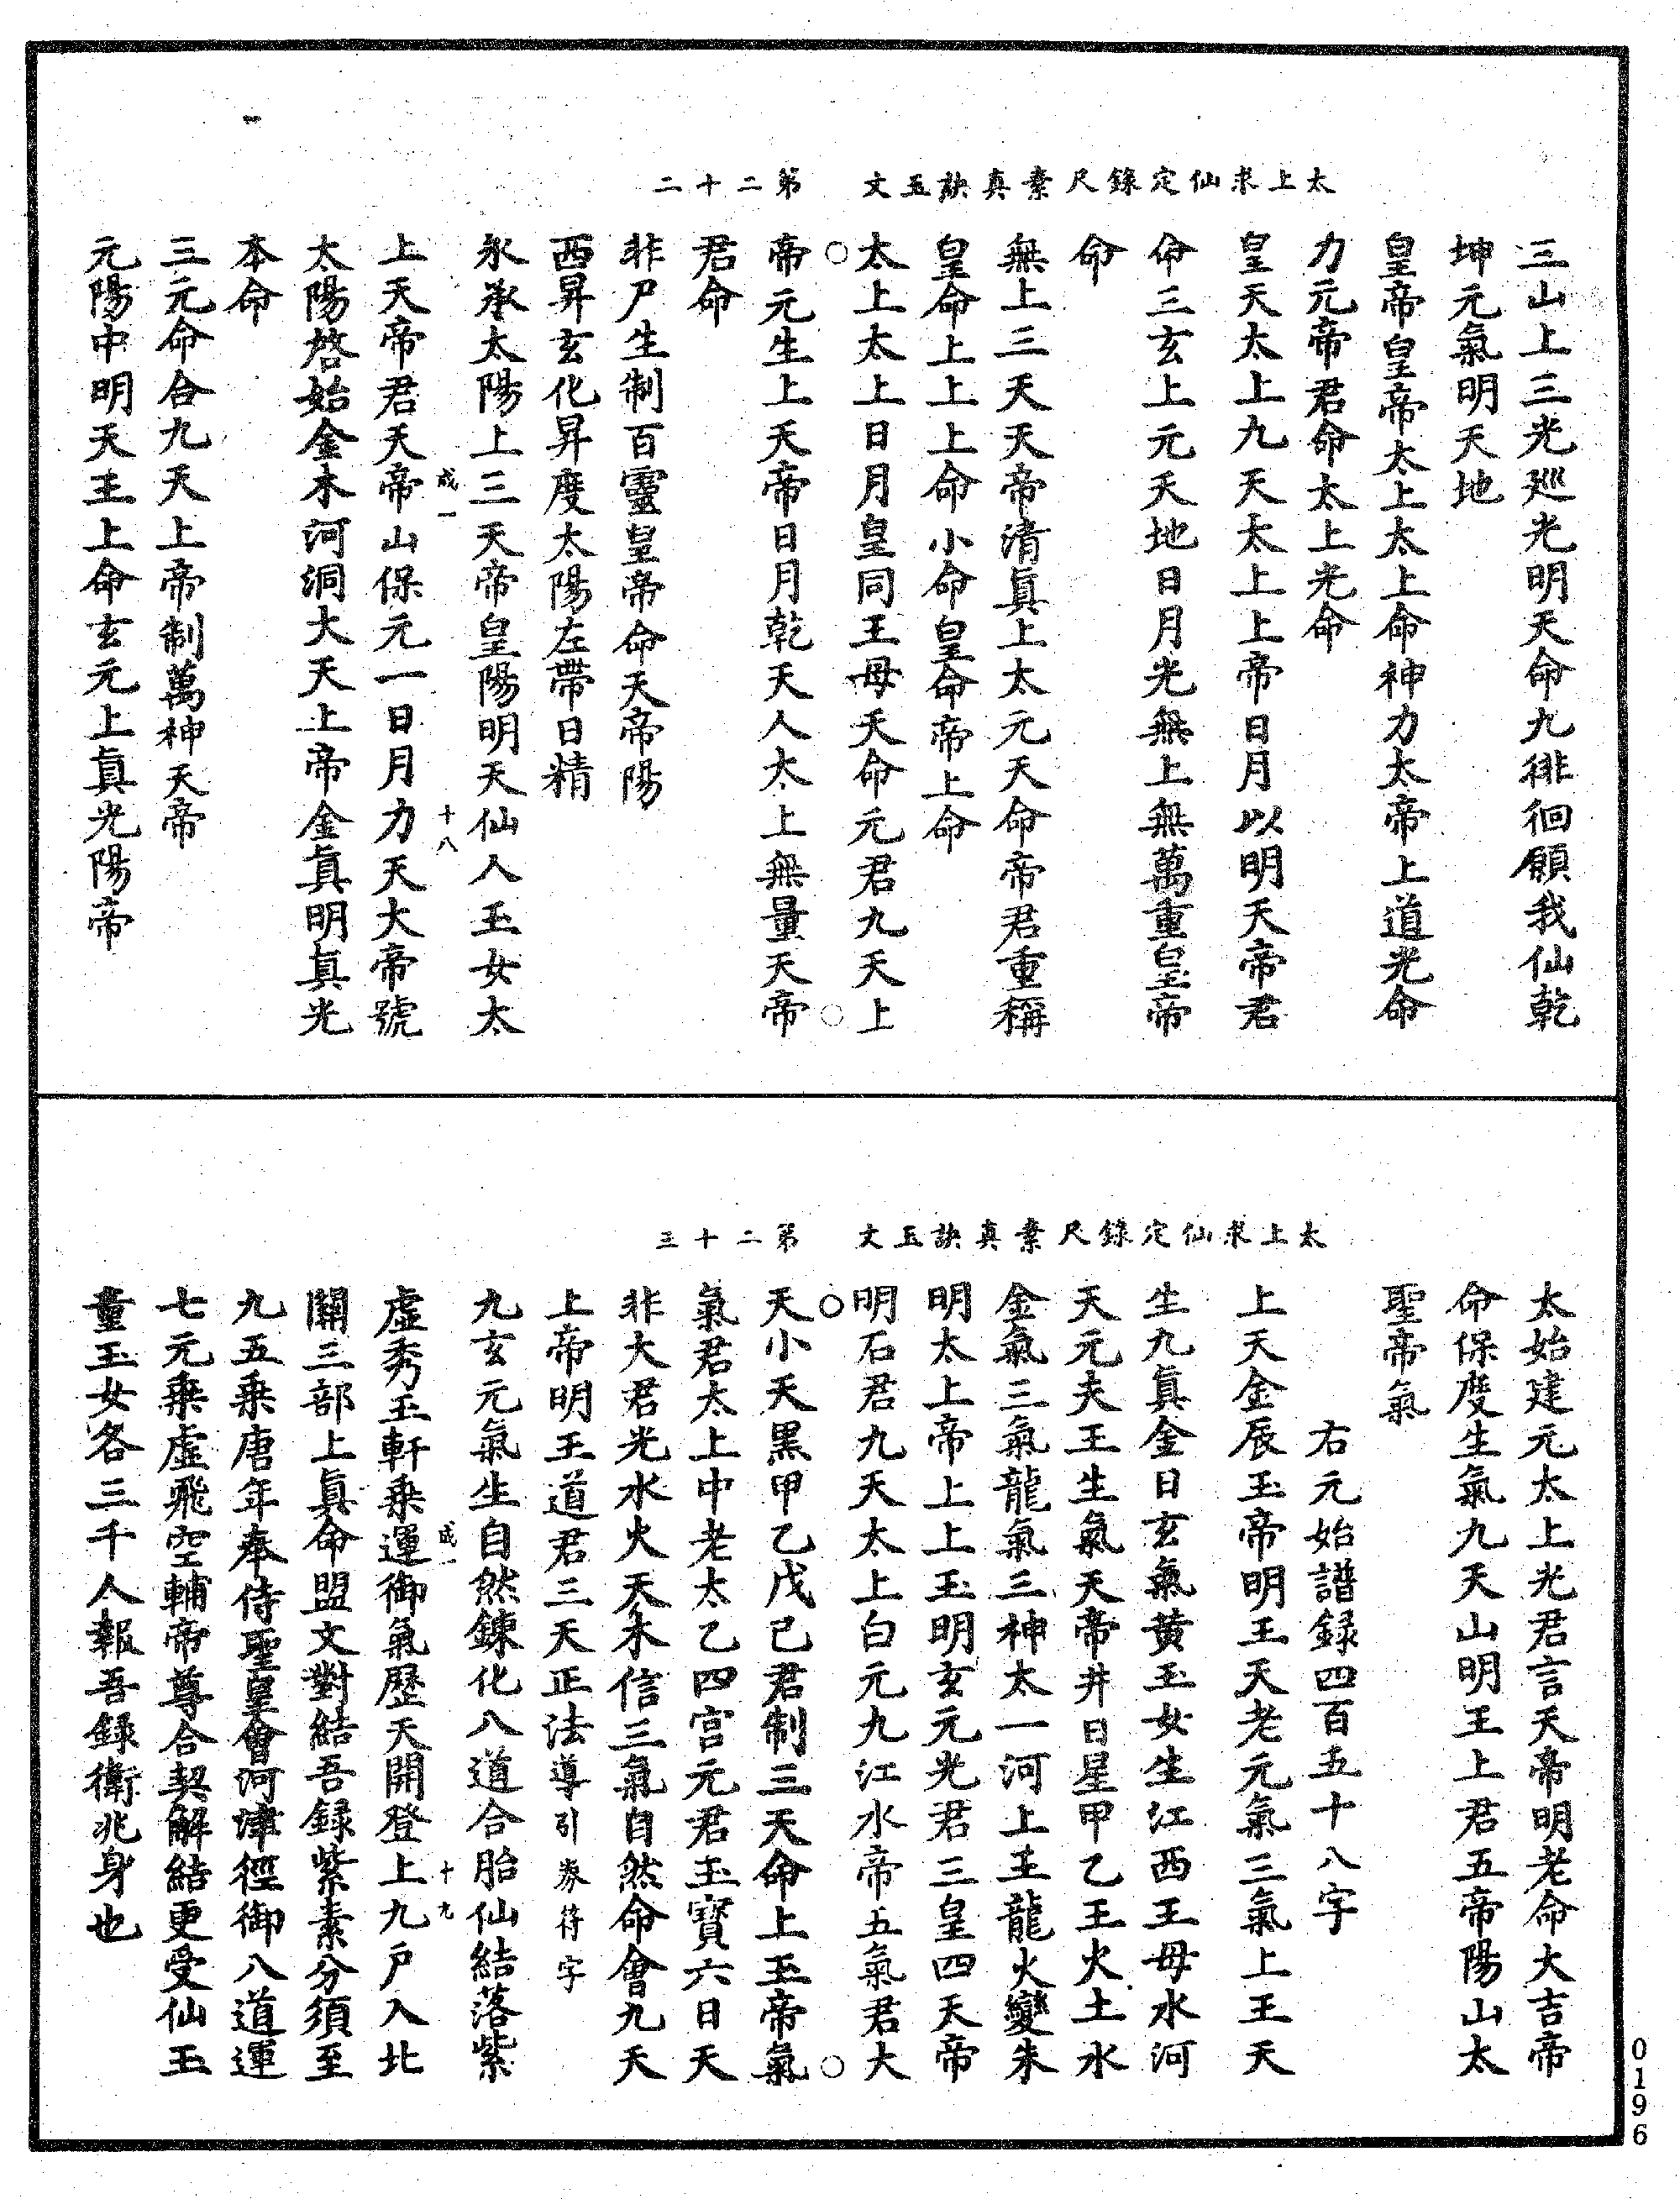 太上求仙定錄尺素真訣玉文　第二十二
三山上三光廵光明天命九徘徊願我仙乾
坤元氣明天地
皇帝皇帝太上太上命神力太帝上道光命
力元帝君命太上光命
皇天太上九天太上上帝日月以明天帝君
命三玄上元天地日月光無上無萬重皇帝
命
無上三天天帝清眞上太元天命帝君重稱
皇命上上上命小命皇命帝上命
太上太上日月皇同王母天命元君九天上
帝元生上天帝日月乾天人太上無量天帝
君命
非尸生制百靈皇帝命天帝陽
西昇玄化昇度太陽左帶日精
永承太陽上三天帝皇陽明天仙人玉女太
咸一　十八
上天帝君天帝山保元一日月力天大帝號
太陽啓始金木河洞大天上帝金眞明眞光
本命
三元命合九天上帝制萬神天帝
元陽中明天王上命玄元上眞光陽帝
太上求仙定錄尺素真訣玉文　第二十三
太始建元太上光君言天帝明老命大吉帝
命保度生氣九天山明王上君五帝陽山太
聖帝氣
右元始譜録四百五十八字
上天金辰玉帝明王天老元氣三氣上王天
生九眞金日玄氣黄玉女生江西王母水河
天元夫王生氣天帝井日星甲乙王火土水
金氣三氣龍氣三神太一河上王龍火變朱
明太上帝上上玉明玄元光君三皇四天帝
明石君九天太上白元九江水帝五氣君大
天小天黑甲乙戊己君制三天命上玉帝氣
氣君太上中老太乙四宫元君玉寳六日天
非大君光水火天木信三氣自然命會九天
上帝明王道君三天正法導引券符字
九玄元氣生自然錬化八道合胎仙結落紫
咸一　十九
虛秀玉軒乗運御氣歷天開登上九户入北
關三部上眞命盟文對結吾録紫素分須至
九五乗唐年奉侍聖皇會河津徑御八道運
七元乗虛飛空輔帝尊合契解結更受仙玉
童玉女各三千人報吾録衛兆身也
0196